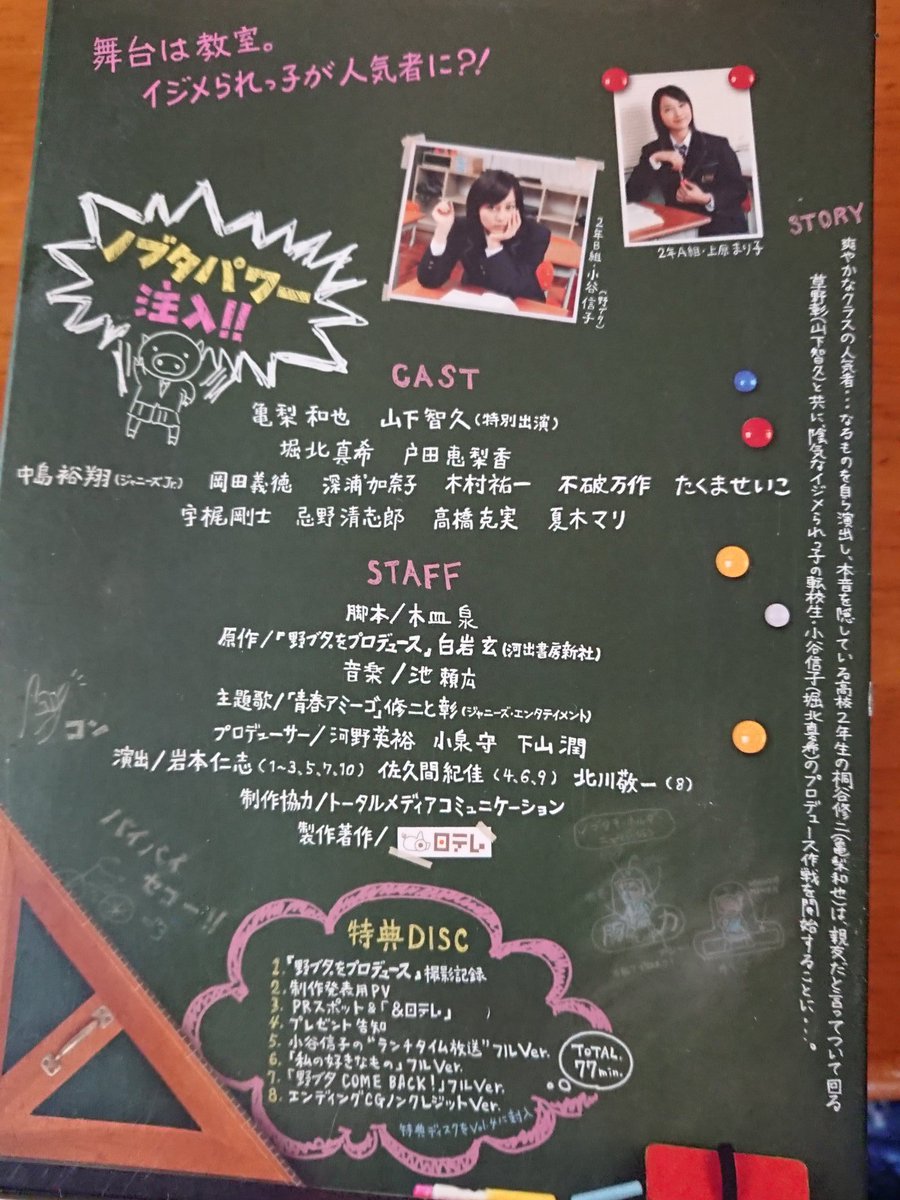 舞台は教室。
イジメられっ子が人気者に?!
ノブタパワー
注入!!
2年B組・小谷信子(野ブタ)
2年A組・上原まり子
STORY
爽やかなクラスの人気者・・・なるものを自ら演出し、本音を隠している高校2年生の桐谷修二(亀梨和也)は、親友だと言ってついて回る
草野彰(山下智久)と共に、陰気なイジメられっ子の転校生・小谷信子(堀北真希)のプロデュース作戦を開始することに・・・。
CAST
亀梨和也 山下智久(特別出演)
堀北真希 戸田恵梨香
中島裕翔(ジャニーズJr.) 岡田義徳 深浦加奈子 木村祐一 不破万作 たくませいこ
宇梶剛士 忌野清志郎 高橋克実 夏木マリ
STAFF
脚本/木皿泉
原作/「野ブタ。をプロデュース」白岩玄(河出書房新社)
音楽/池頼広
主題歌/「青春アミーゴ」修二と彰(ジャニーズ・エンタテイメント)
プロデューサー/河野英裕 小泉守 下山潤
演出/岩本仁志(1~3、5、7、10) 佐久間紀佳(4、6、9) 北川敬一(8)
制作協力/トータルメディアコミュニケーション
製作著作/日テレ
コン
バイバイ
セコー!!
特典DISC
1.「野ブタ。をプロデュース」撮影記録
2.制作発表用PV
3.PRスポット&「&日テレ」
4.プレゼント告知
5.小谷信子の"ランチタイム放送"フルVer.
6.「私の好きなもの」フルVer.
7.「野ブタ COME BACK!」フルVer.
8.エンディングCGノンクレジットVer.
TOTAL.
77min.
特典ディスクをVol.4に封入